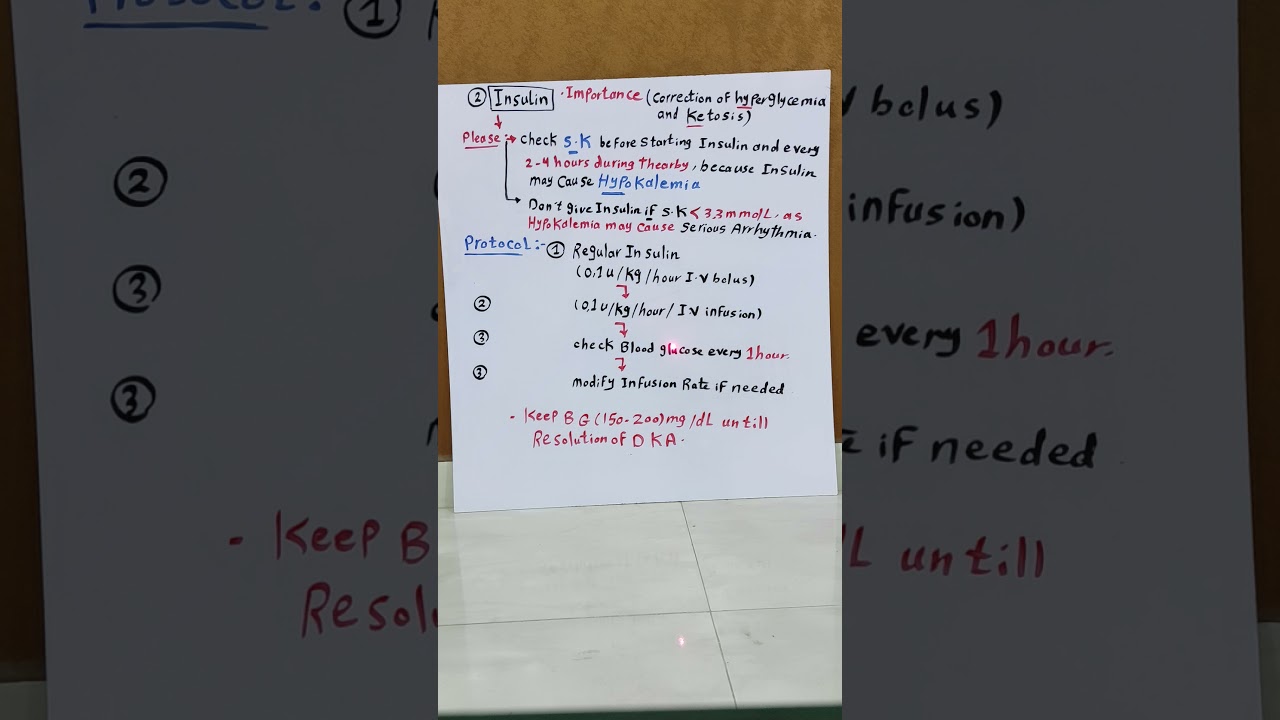 ② Insulin · Importance (correction of hyperglycemia
and Ketosis)
Please :→ check S.K before starting Insulin and every
2-4 hours during thearby, because Insulin
may cause HypoKalemia
→ Don't give Insulin if S.K < 3,3 mmol/L, as
HypoKalemia may cause serious Arrhythmia.
Protocol:- ① Regular Insulin
(0,1u/kg/hour I.V bolus)
② (0,1u/kg/hour/ I V infusion)
③ check Blood glucose every 1hour.
③ modify Infusion Rate if needed
- Keep B G (150-200)mg/dL untill
Resolution of D K A.
Protocol: ①
V bolus)
②
infusion)
③
every 1hour.
③
if needed
- Keep B
L untill
Resol